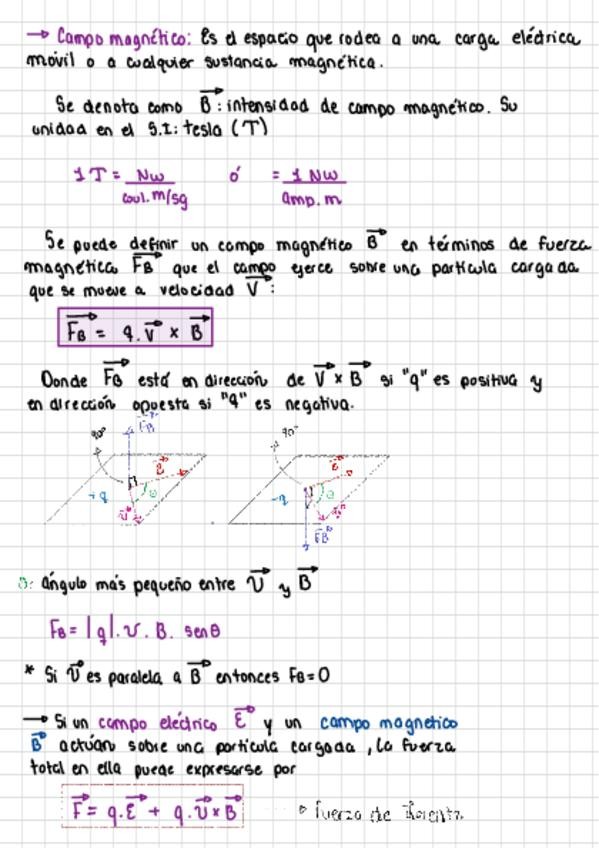 → Campo magnético: Es el espacio que rodea a una carga eléctrica
móvil o a cualquier sustancia magnética.
Se denota como B⃗: intensidad de campo magnético. Su
unidad en el S.I: tesla (T)
1 T = Nw / coul. m/sg ó = 1 Nw / amp. m
Se puede definir un campo magnético B⃗ en términos de fuerza
magnética F⃗B que el campo ejerce sobre una partícula cargada
que se mueve a velocidad V⃗:
F⃗B = q. V⃗ x B⃗
Donde F⃗B está en dirección de V⃗ x B⃗ si "q" es positiva y
en dirección opuesta si "q" es negativa.
90° F⃗B B⃗ +q θ v⃗
90° B⃗ -q θ v⃗ F⃗B
θ: ángulo más pequeño entre v⃗ y B⃗
FB = |q|. v. B. senθ
* Si v⃗ es paralela a B⃗ entonces FB = 0
→ Si un campo eléctrico E⃗ y un campo magnetico
B⃗ actúan sobre una partícula cargada, la fuerza
total en ella puede expresarse por
F⃗ = q. E⃗ + q. v⃗ x B⃗ Fuerza de